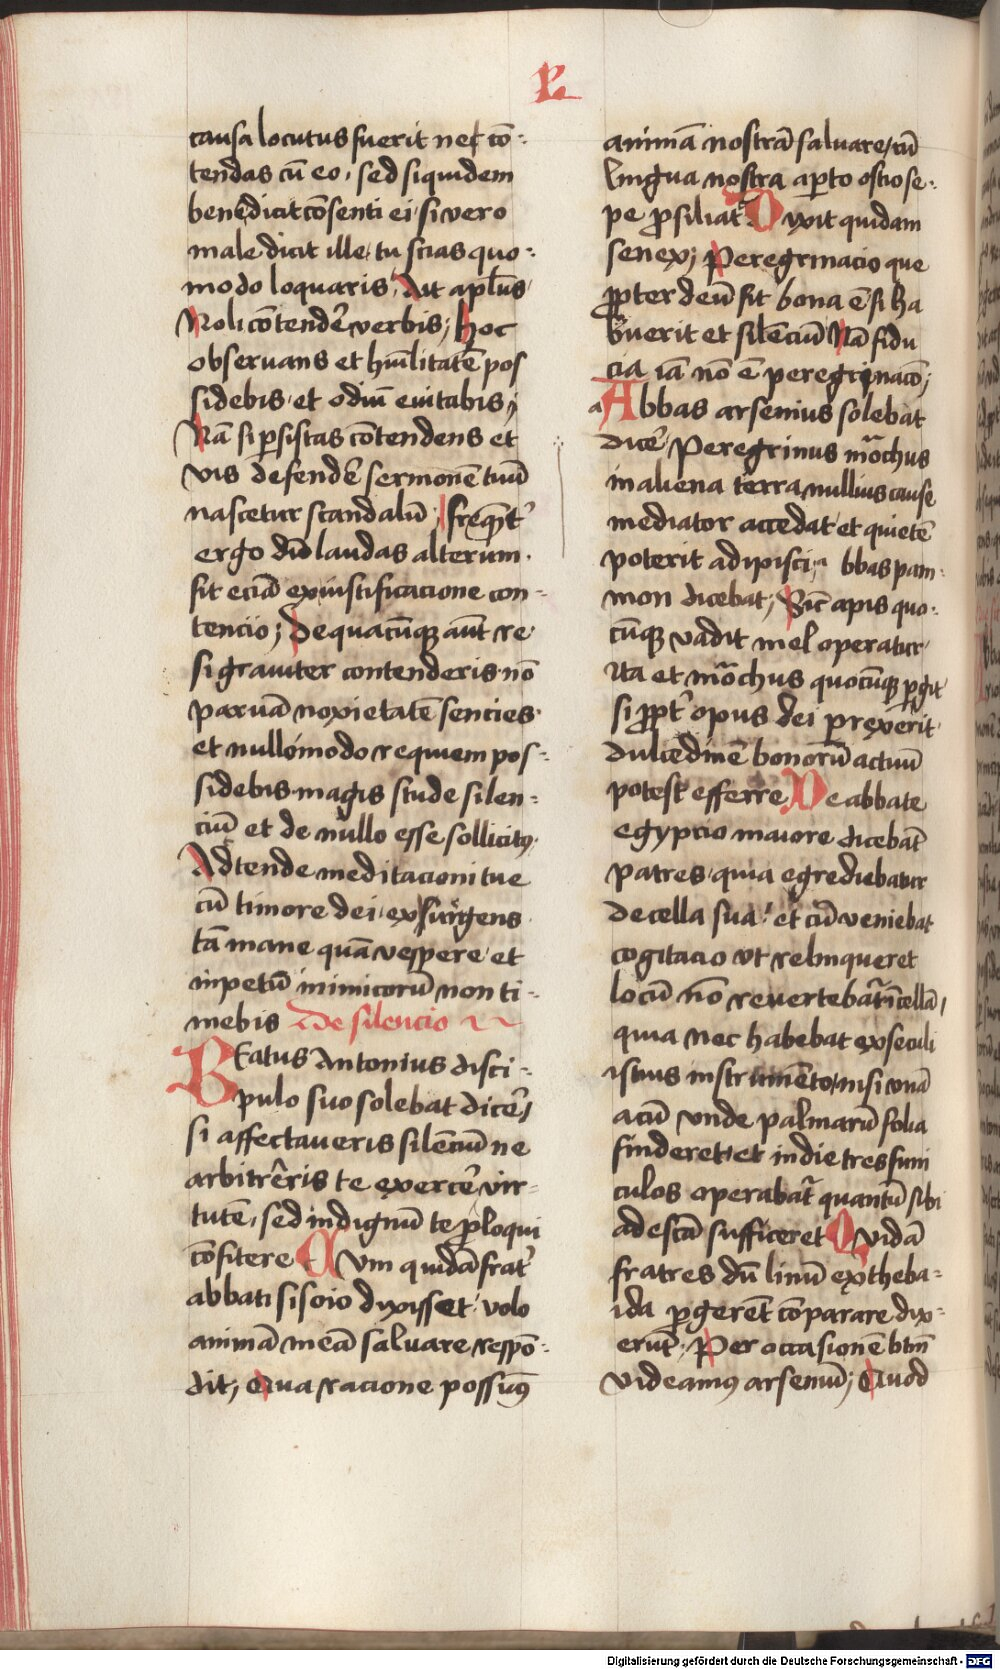 L
causa locutus fuerit nec cō-
tendas cū eo, sed si quidem
benedicit cōsenti ei, si vero
maledicit ille, tu scias quo-
modo loquaris, Ait apl̄us
Noli cōtendē verbis; Hoc
observans et hūilitatē pos
sidebis, et odiū evitabis;
Nā si ꝑsistas cōtendens et
vis defendē sermonē tuū
nascetur scandalū; freqn̄t
ergo dū laudas alterum.
fit eciā ex iustificacione con-
tencio; De quacūqꝫ aūt re
si graviter contenderis nō
parvā noxietatē sencies.
et nullomodo requiem pos-
sidebis. magis stude silen-
ciū et de nullo esse sollicitꝰ
Adtende meditacioni tue
cū timore dei, exsurgens
tā mane quā vespere, et
inpetū inimicorū non ti-
mebis De silencio
BEatus Antonius disci-
pulo suo solebat dicē;
si affectaveris silēciū ne
arbitrēris te exercē vir-
tutē, sed indignū te ꝓ loqui
cōfitere CVm quidā frat̄
abbati sisoio dixisset, volo
animā meā salvare, respō-
dit, Qua racione possumꝰ
animā nostrā salvare, cū
lingua nostra aꝑto ostio se-
pe ꝓsiliat. Dixit quidam
senex; Peregrinacio que
ꝓpter deū fit bona ē si ha
buerit et silēciū Nā fidu
cia iā nō ē peregrinacō;
Abbas arsenius solebat
dicē, Peregrinus mōchus
in aliena terra nullius cause
mediator accedat, et quietē
poterit adipisci; a bbas pam-
mon dicebat; Sic̄ apis quo-
cūqꝫ vadit mel operatur
ita et mōchus quocūqꝫ ꝑgit
si ꝓpt̄ opus dei perrexerit
dulcedinē bonorū actuū
potest efferre De abbate
egypcio maiore dicebāt
patres, quia egrediebatur
de cella sua, et cū veniebat
cogitacio vt relinqueret
locū nō revertebat̄ ī cellā,
quia nec habebat ex seculi
istius instrumēto, nisi vnā
acū vnde palmarū folia
finderet, et in die tres funi
culos operabat̄ quantū sibi
ad escā sufficeret Quidā
fratres dū linū ex theba-
ida ꝑgerēt cōparare dix-
erūt, Per occasionē btm̄
videamꝰ arseniū; Quod
Digitalisierung gefördert durch die Deutsche Forschungsgemeinschaft - DFG